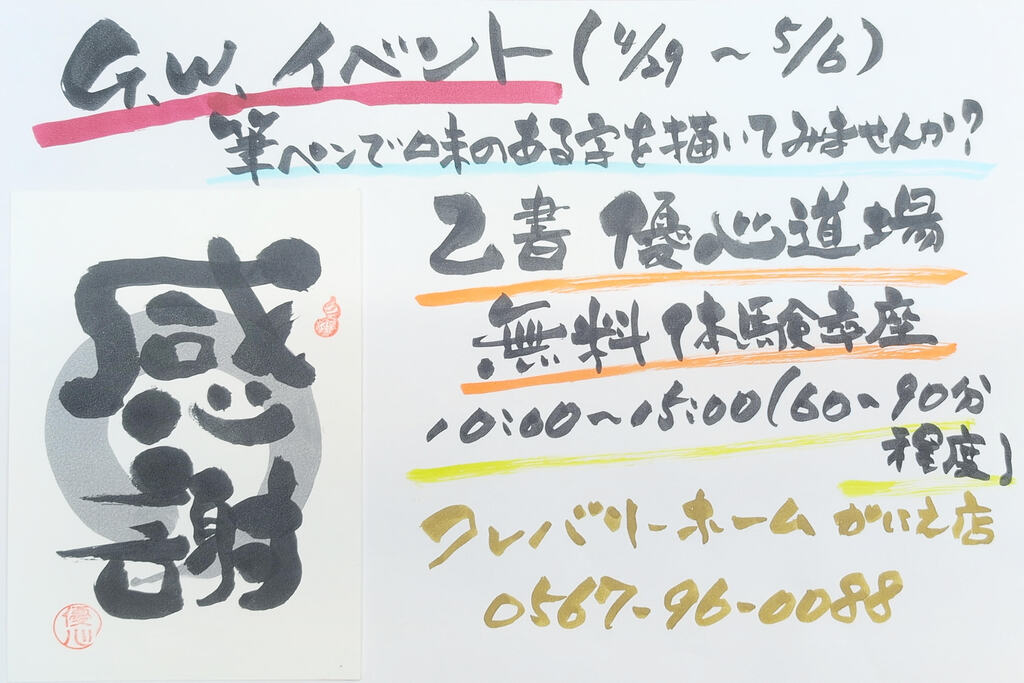 G.W.イベント (4/29 ～ 5/6)
筆ペンで味のある字を描いてみませんか?
乙書 優心道場
無料 体験幸座
10:00～15:00(60～90分
程度)
クレバリーホーム かにえ店
0567-96-0088
感謝
優心